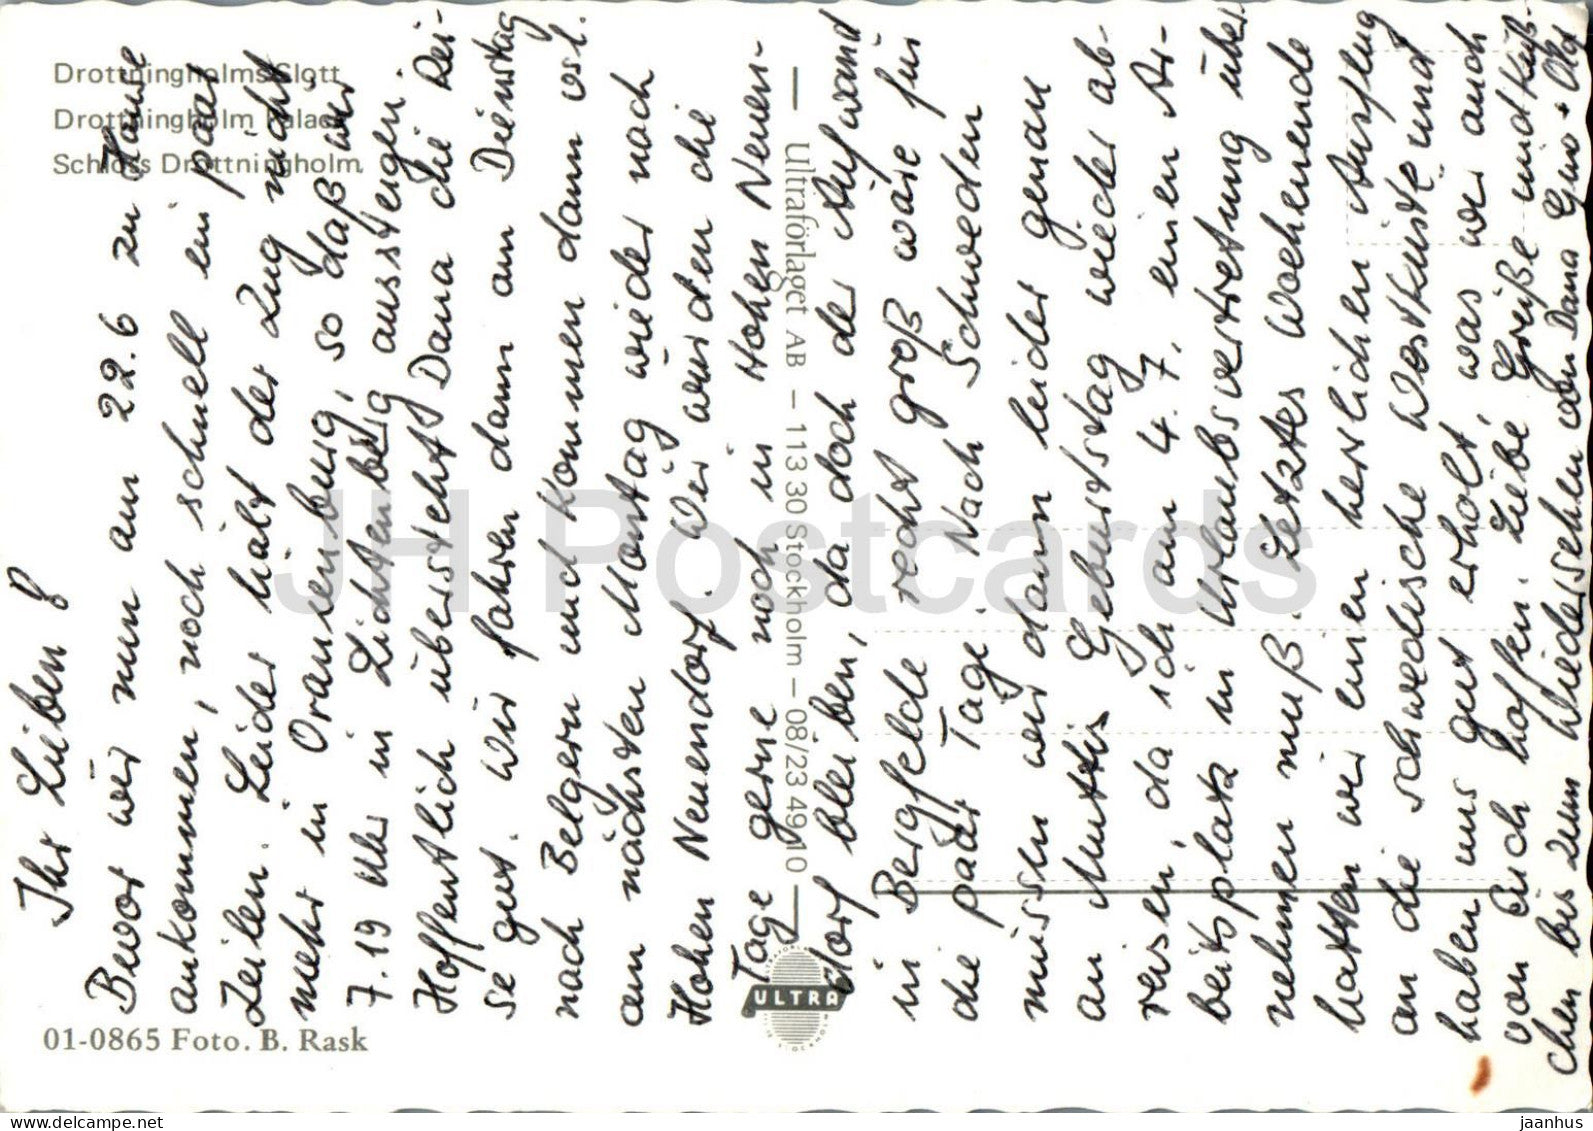 Drottningholms Slott
Drottningholm Palace
Schloss Drottningholm.
01-0865 Foto. B. Rask
Ultraförlaget AB – 113 30 Stockholm – 08/23 49 10
ULTRA
Ihr Lieben!
Bevor wir nun am 22.6 zu Hause
ankommen, noch schnell ein paar
Zeilen. Leider hält der Zug nicht
mehr in Oranienburg, so daß wir
7.19 Uhr in Lichtenberg aussteigen.
Hoffentlich übersteht Dana die Rei-
se gut. Wir fahren dann am Dienstag
nach Belgern und kommen dann vsl.
am nächsten Montag wieder nach
Hohen Neuendorf. Wir würden die
Tage gerne noch in Hohen Neuen-
dorf bleiben, da doch der Aufwand
in Bergfelde recht groß wäre für
die paar Tage. Nach Schweden
müssen wir dann leider genau
an Muttis Geburtstag wieder ab-
reisen, da ich am 4.7. einen Ar-
beitsplatz in Urlaubsvertretung über-
nehmen muß. Letztes Wochenende
hatten wir einen herrlichen Ausflug
an die schwedische Westküste und
haben uns gut erholt, was wir auch
von Euch hoffen. Liebe Grüße und Küß-
chen bis zum Wiedersehen von Dana Gino + Olaf
JH Postcards
www.delcampe.net
jaanhus